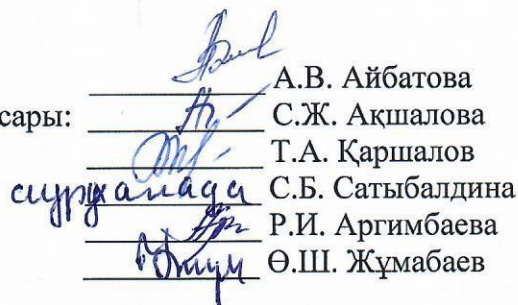 А.В. Айбатова
сары: С.Ж. Ақшалова
Т.А. Қаршалов
ауруханада С.Б. Сатыбалдина
Р.И. Аргимбаева
Ө.Ш. Жұмабаев